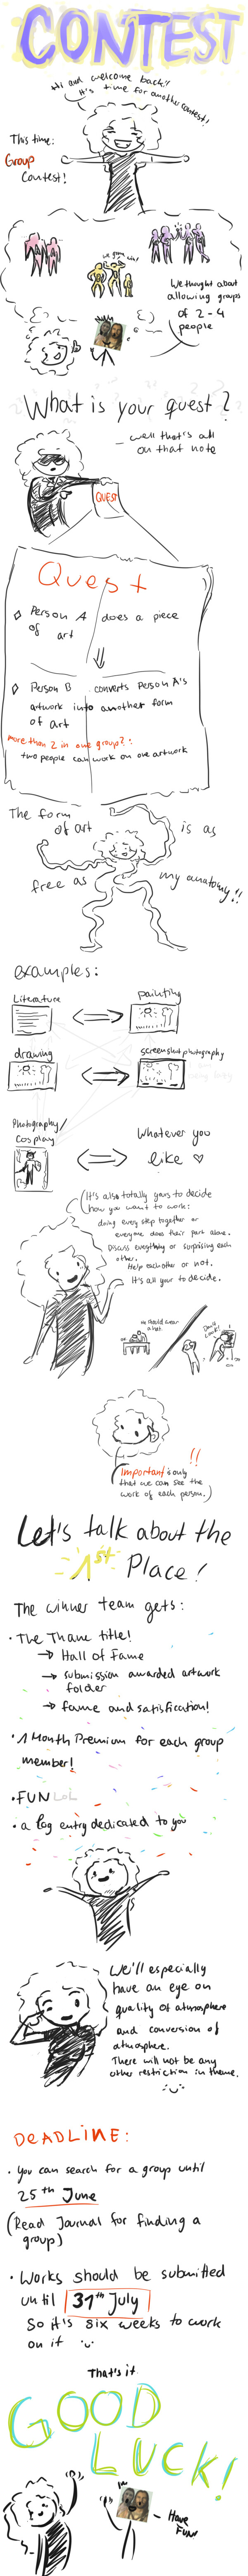 CONTEST
Hi and welcome back!!
It's time for another contest!
This time:
Group
Contest!
We thought about
allowing groups
of 2-4
people
What is your quest?
– well that's all
on that note
QUEST
Quest
Person A does a piece
of art
Person B converts Person A's
artwork into another form
of art
more than 2 in one group?:
two people can work on one artwork
The form
of art
is as
free as
my anatomy!!
examples:
Literature
painting
drawing
screenshotphotography
Photography/
Cosplay
Whatever you
like
It's also totally yours to decide
how you want to work:
doing every step together or
everyone does their part alone.
Discuss everything or surprising each
other.
Help each other or not.
It's all your to decide.
Don't
look!
!!
Important is only
that we can see the
work of each person.
Let's talk about the
1st Place!
The winner team gets:
• The Thane title!
→ Hall of Fame
→ submission awarded artwork
folder
→ fame and satisfaction!
• 1 Month Premium for each group
member!
• FUN LOL
• a log entry dedicated to you
We'll especially
have an eye on
quality of atmosphere
and conversion of
atmosphere.
There will not be any
other restriction in theme.
DEADLINE:
• you can search for a group until
25th June
(Read Journal for finding a
group)
• Works should be submitted
until 31th July
So it's six weeks to work
on it
That's it
GOOD
LUCK!
– Have
FUN